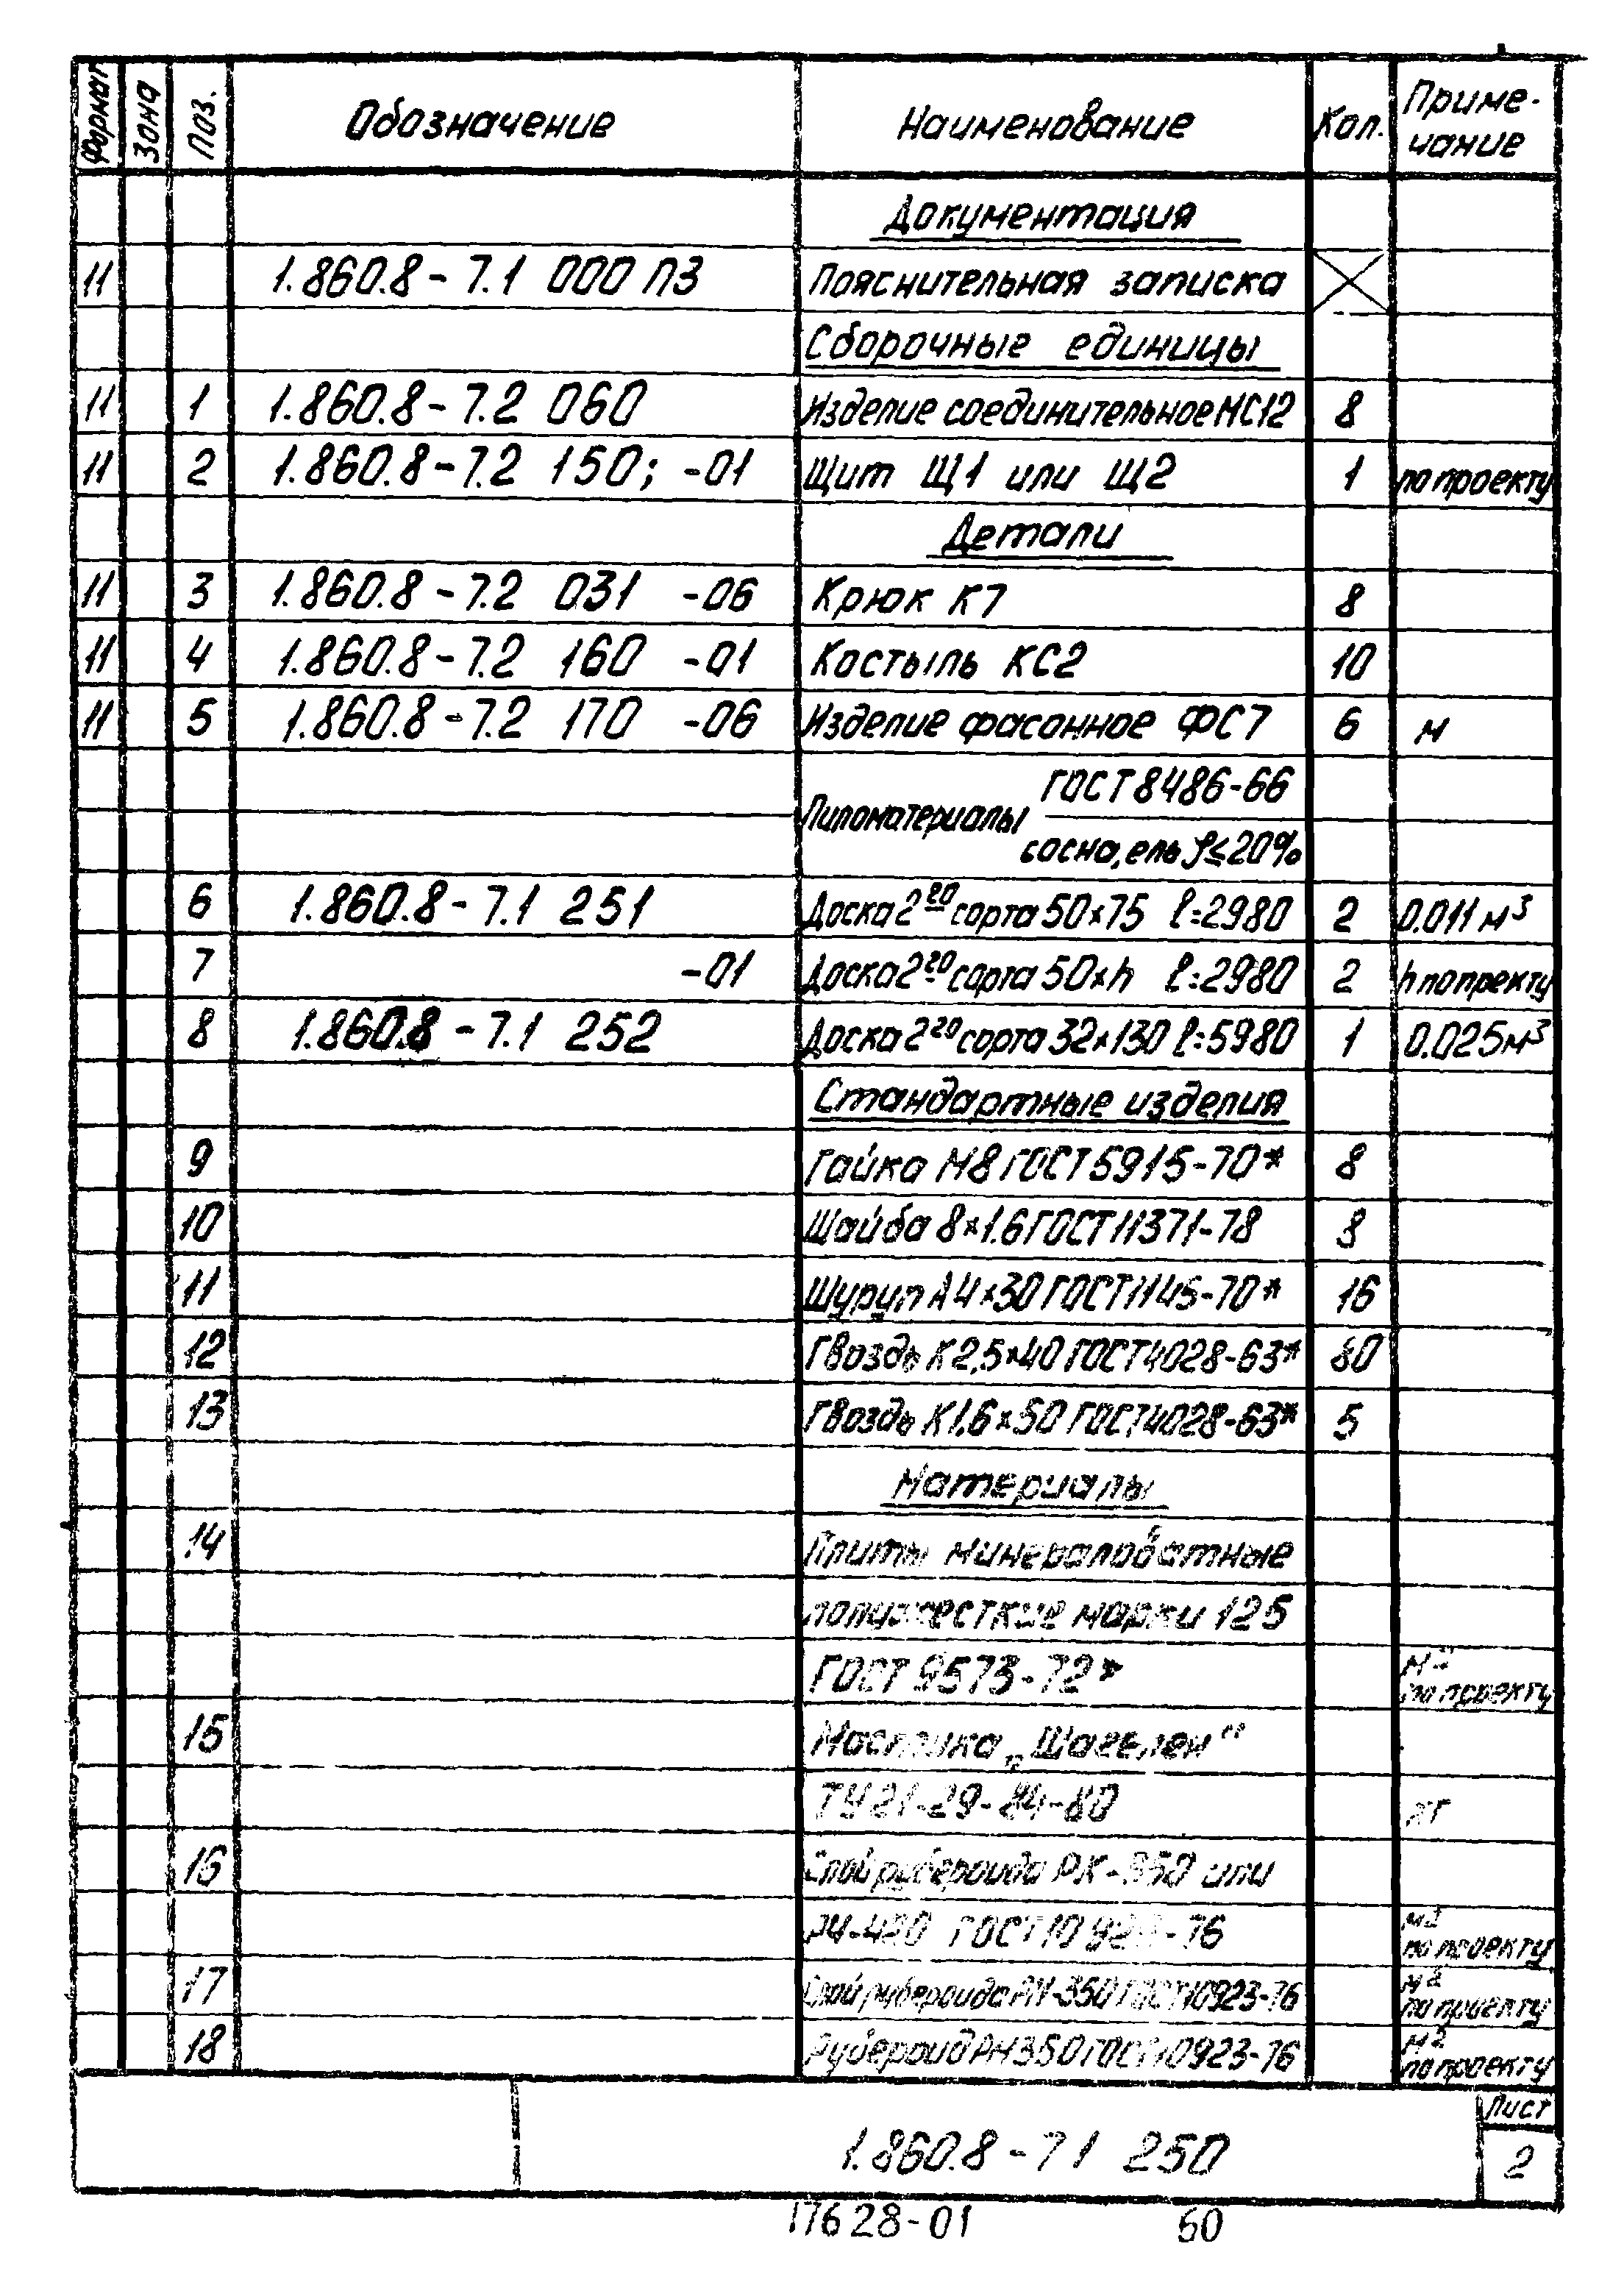 Формат Зона Поз. Обозначение Наименование Кол. Приме-
чание
Документация
11 1.860.8-7.1 000 ПЗ Пояснительная записка
Сборочные единицы
11 1 1.860.8-7.2 060 Изделие соединительное МС12 8
11 2 1.860.8-7.2 150; -01 Щит Щ1 или Щ2 1 по проекту
Детали
11 3 1.860.8-7.2 031 -06 Крюк К7 8
11 4 1.860.8-7.2 160 -01 Костыль КС2 10
11 5 1.860.8-7.2 170 -06 Изделие фасонное ФС7 6 м
ГОСТ 8486-66
Пиломатериалы
сосна, ель γ≤20%
6 1.860.8-7.1 251 Доска 2го сорта 50×75 ℓ=2980 2 0.011 м³
7 -01 Доска 2го сорта 50×h ℓ=2980 2 h по пректу
8 1.860.8-7.1 252 Доска 2го сорта 32×130 ℓ=5980 1 0.025м³
Стандартные изделия
9 Гайка М8 ГОСТ 5915-70* 8
10 Шайба 8×1.6 ГОСТ 11371-78 8
11 Шуруп А4×30 ГОСТ 1145-70* 16
12 Гвоздь К2,5×40 ГОСТ 4028-63* 80
13 Гвоздь К1,6×50 ГОСТ 4028-63* 5
Материалы
14 Плиты минераловатные
полужесткие марки 125
ГОСТ 9573-72* м²
по проекту
15 Мастика „Шагелен"
ТУ 21-29-84-80 кг
16 Слой рубероида РК-350 или
РЧ-420 ГОСТ 10923-76 м²
по проекту
17 Слой рубероида РМ-350 ГОСТ 10923-76 м²
по проекту
18 Рубероид РМ350 ГОСТ 10923-76 м²
по проекту
Лист
1.860.8-7 1 250 2
17628-01 60